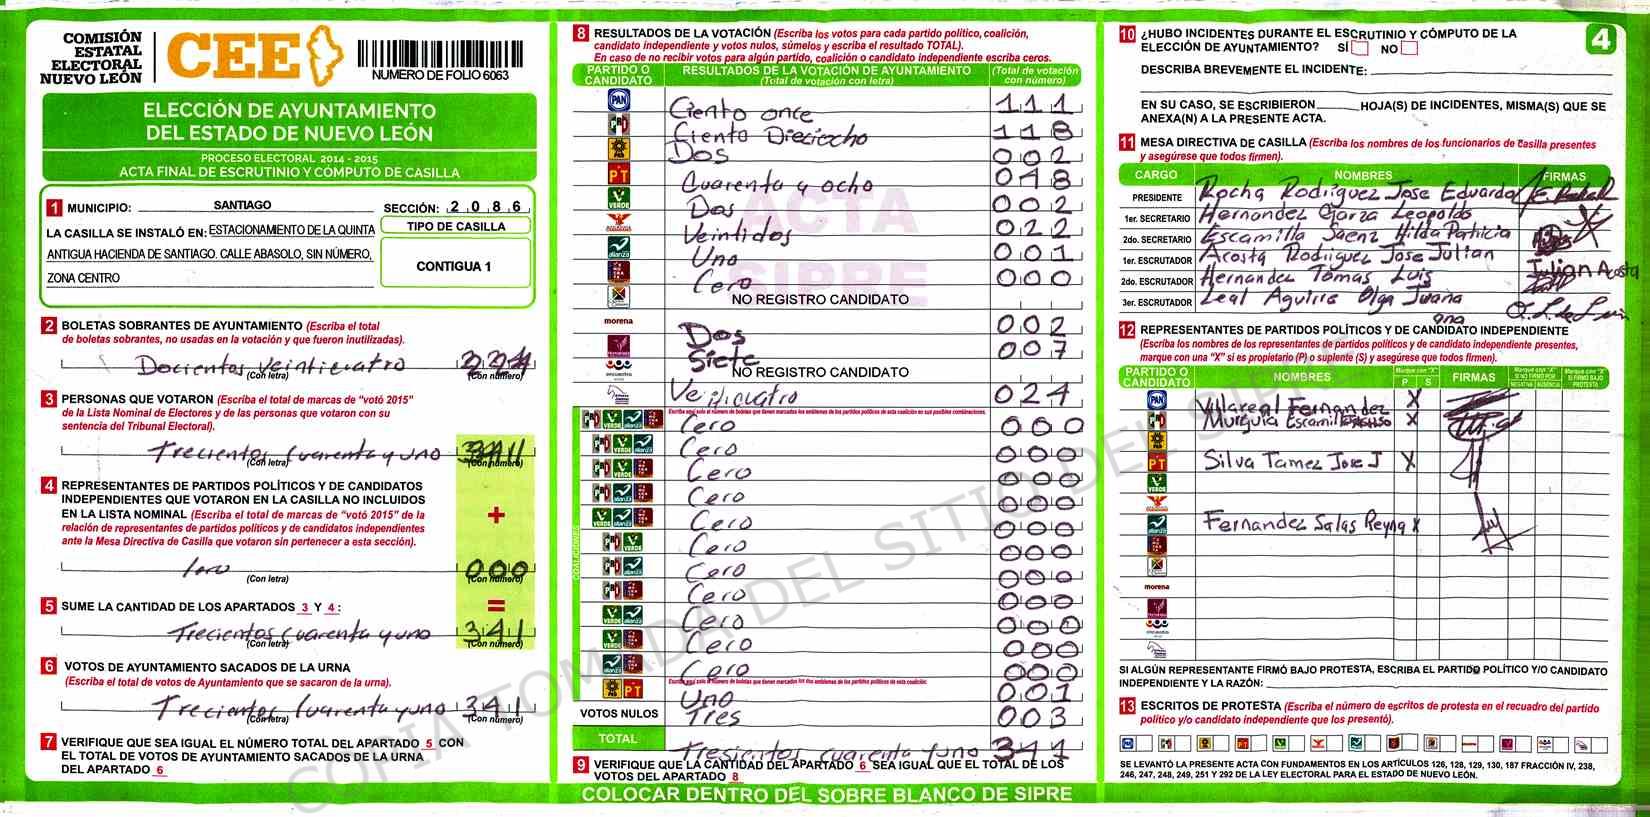 COMISIÓN
ESTATAL
ELECTORAL
NUEVO LEÓN
CEE
NUMERO DE FOLIO 6063
ELECCIÓN DE AYUNTAMIENTO
DEL ESTADO DE NUEVO LEÓN
PROCESO ELECTORAL 2014 - 2015
ACTA FINAL DE ESCRUTINIO Y CÓMPUTO DE CASILLA
1 MUNICIPIO: SANTIAGO SECCIÓN: 2 0 8 6
LA CASILLA SE INSTALÓ EN: ESTACIONAMIENTO DE LA QUINTA
ANTIGUA HACIENDA DE SANTIAGO. CALLE ABASOLO, SIN NÚMERO,
ZONA CENTRO
TIPO DE CASILLA
CONTIGUA 1
2 BOLETAS SOBRANTES DE AYUNTAMIENTO (Escriba el total
de boletas sobrantes, no usadas en la votación y que fueron inutilizadas).
Docientos veinticuatro 224
(Con letra) (Con número)
3 PERSONAS QUE VOTARON (Escriba el total de marcas de "votó 2015"
de la Lista Nominal de Electores y de las personas que votaron con su
sentencia del Tribunal Electoral).
Trecientos Cuarenta y uno 341
(Con letra) (Con número)
4 REPRESENTANTES DE PARTIDOS POLÍTICOS Y DE CANDIDATOS
INDEPENDIENTES QUE VOTARON EN LA CASILLA NO INCLUIDOS
EN LA LISTA NOMINAL (Escriba el total de marcas de "votó 2015" de la
relación de representantes de partidos políticos y de candidatos independientes
ante la Mesa Directiva de Casilla que votaron sin pertenecer a esta sección).
+
Cero 000
(Con letra) (Con número)
5 SUME LA CANTIDAD DE LOS APARTADOS 3 Y 4 : =
Trecientos Cuarenta y uno 341
(Con letra) (Con número)
6 VOTOS DE AYUNTAMIENTO SACADOS DE LA URNA
(Escriba el total de votos de Ayuntamiento que se sacaron de la urna).
Trecientos Cuarenta y uno 341
(Con letra) (Con número)
7 VERIFIQUE QUE SEA IGUAL EL NÚMERO TOTAL DEL APARTADO 5 CON
EL TOTAL DE VOTOS DE AYUNTAMIENTO SACADOS DE LA URNA
DEL APARTADO 6
8 RESULTADOS DE LA VOTACIÓN (Escriba los votos para cada partido político, coalición,
candidato independiente y votos nulos, súmelos y escriba el resultado TOTAL).
En caso de no recibir votos para algún partido, coalición o candidato independiente escriba ceros.
PARTIDO O CANDIDATO
RESULTADOS DE LA VOTACIÓN DE AYUNTAMIENTO
(Total de votación con letra)
(Total de votación con número)
PAN Ciento once 111
PRD Ciento Dieciocho 118
PRD Dos 002
PT Cuarenta y ocho 048
VERDE Dos 002
Veintidos 022
alianza Uno 001
Cero 000
NO REGISTRO CANDIDATO
morena Dos 002
Siete 007
encuentro NO REGISTRO CANDIDATO
Veinticuatro 024
COALICIONES
Escriba aquí solo el número de boletas que tienen marcados los emblemas de los partidos políticos de esta coalición en sus posibles combinaciones.
Cero 000
Cero 000
Cero 000
Cero 000
Cero 000
Cero 000
Cero 000
Cero 000
Cero 000
Cero 000
Cero 000
Escriba aquí solo el número de boletas que tienen marcados los dos emblemas de los partidos políticos de esta coalición.
PRD PT Uno 001
VOTOS NULOS Tres 003
TOTAL Tresientos cuarenta y uno 341
9 VERIFIQUE QUE LA CANTIDAD DEL APARTADO 6 SEA IGUAL QUE EL TOTAL DE LOS
VOTOS DEL APARTADO 8
COLOCAR DENTRO DEL SOBRE BLANCO DE SIPRE
ACTA
SIPRE
COPIA TOMADA DEL SITIO DEL SIPRE
4
10 ¿HUBO INCIDENTES DURANTE EL ESCRUTINIO Y CÓMPUTO DE LA
ELECCIÓN DE AYUNTAMIENTO? SÍ NO
DESCRIBA BREVEMENTE EL INCIDENTE:
EN SU CASO, SE ESCRIBIERON HOJA(S) DE INCIDENTES, MISMA(S) QUE SE
ANEXA(N) A LA PRESENTE ACTA.
11 MESA DIRECTIVA DE CASILLA (Escriba los nombres de los funcionarios de casilla presentes
y asegúrese que todos firmen).
CARGO NOMBRES FIRMAS
PRESIDENTE Rocha Rodriguez Jose Eduardo
1er. SECRETARIO Hernandez Garza Leopoldo
2do. SECRETARIO Escamilla Saenz Hilda Patricia
1er. ESCRUTADOR Acosta Rodriguez Jose Julian Julian Acosta
2do. ESCRUTADOR Hernandez Tomas Luis
3er. ESCRUTADOR Leal Aguirre Olga Juana
12 REPRESENTANTES DE PARTIDOS POLÍTICOS Y DE CANDIDATO INDEPENDIENTE
(Escriba los nombres de los representantes de partidos políticos y de candidato independiente presentes,
marque con una "X" si es propietario (P) o suplente (S) y asegúrese que todos firmen).
PARTIDO O CANDIDATO NOMBRES Marque con "X" P S FIRMAS
Marque con "X" SI NO FIRMÓ POR NEGATIVA AUSENCIA
Marque con "X" SI FIRMÓ BAJO PROTESTA
PAN Villareal Fernandez X
Murguia Escamilla X
PT Silva Tamez Jose J X
VERDE
Fernandez Salas Reyna X
morena
SI ALGÚN REPRESENTANTE FIRMÓ BAJO PROTESTA, ESCRIBA EL PARTIDO POLÍTICO Y/O CANDIDATO
INDEPENDIENTE Y LA RAZÓN:
13 ESCRITOS DE PROTESTA (Escriba el número de escritos de protesta en el recuadro del partido
político y/o candidato independiente que los presentó).
SE LEVANTÓ LA PRESENTE ACTA CON FUNDAMENTOS EN LOS ARTÍCULOS 126, 128, 129, 130, 187 FRACCIÓN IV, 238,
246, 247, 248, 249, 251 Y 292 DE LA LEY ELECTORAL PARA EL ESTADO DE NUEVO LEÓN.